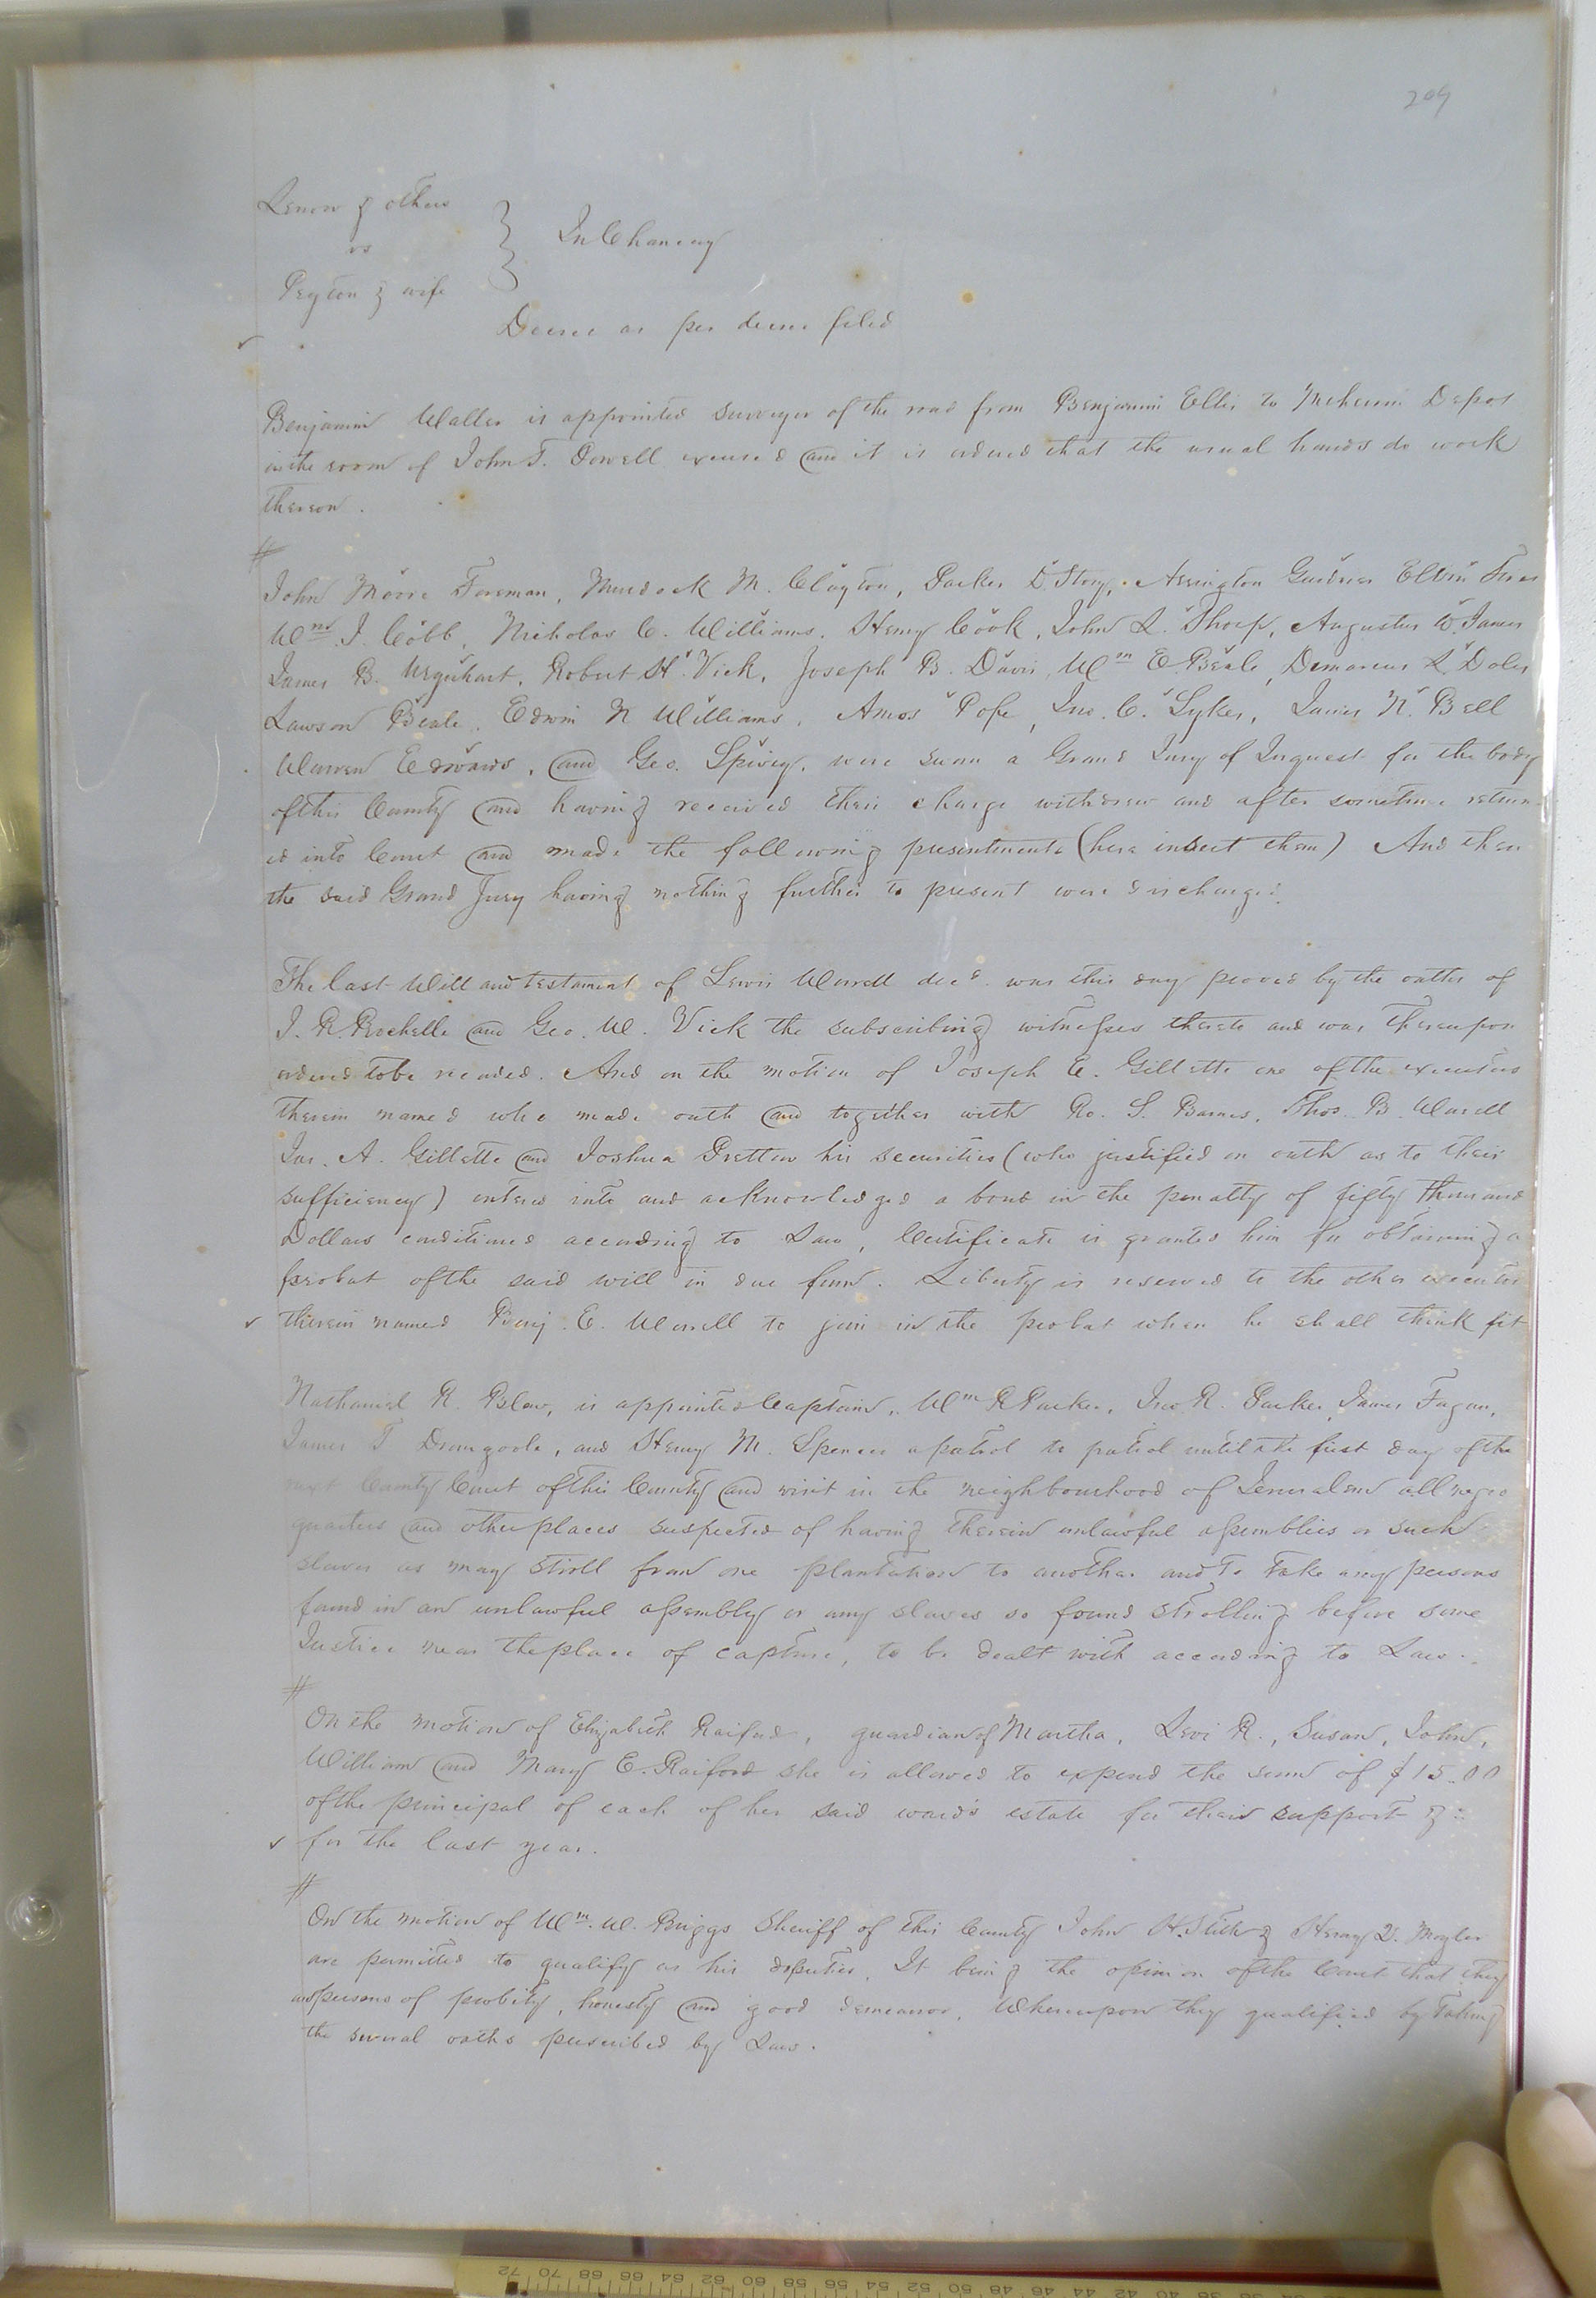 209
Lenow & others
vs
In Chancery
Peyton & wife
Decree as per decree filed
Benjamin Waller is appointed surveyor of the road from Benjamin Ellis to Meherrin Depot
in the room of John T. Powell excused and it is ordered that the usual hands do work
thereon.
John Moore Foreman, Murdock M. Clayton, Parker D. Story, Arrington Gardner Elvin
Wm. J. Cobb, Nicholas C. Williams, Henry Cook, John L. Thorp, Augustus W. James
James B. Urquhart, Robert H. Vick, Joseph B. Davis, Wm E. Beale, Demarcus L. Doles
Lawson Beale, Edwin N Williams, Amos Pope, Jno. C. Sykes, James N. Bell
Warren Edwards, and Geo. Spivey, were sworn a Grand Jury of Inquest for the body
of this County and having received their charge withdrew and after sometime return
ed into Court and made the following presentments (here insert them) And then
the said Grand Jury having nothing further to present were discharged.
The last Will and testament of Lewis Worrell decd. was this day proved by the oaths of
J. R. Rochelle and Geo. W. Vick the subscribing witnesses thereto and was thereupon
ordered to be recorded. And on the motion of Joseph E. Gillette one of the executors
therein named who made oath and together with Ro. S. Barnes, Thos. B. Worrell
Jas. A. Gillette and Joshua Pretlow his securities (who justified on oath as to their
sufficiency) entered into and acknowledged a bond in the penalty of fifty thousand
Dollars conditioned according to Law, Certificate is granted him for obtaining a
probat of the said will in due form. Liberty is reserved to the other executor
therein named Benj. E. Worrell to join in the probat when he shall think fit
Nathaniel R. Blow, is appointed Captain, Wm R Parker, Jno. R. Parker, James Fagan,
James T Dromgoole, and Henry M. Spencer a patrol to patrol until the first day of the
next County Court of this County and visit in the neighbourhood of Jerusalem all negro
quarters and other places suspected of having therein unlawful assemblies or such
slaves as may stroll from one plantation to another and to take any persons
found in an unlawful assembly or any slaves so found strolling before some
Justice near the place of capture, to be dealt with according to Law.
On the motion of Elizabeth Raiford, guardian of Martha, Levi R., Susan, John,
William and Mary E. Raiford she is allowed to expend the sum of $15.00
of the principal of each of her said ward's estate for their support &c
for the last year.
On the motion of Wm. W. Briggs Sheriff of this County John H. Stith & Henry
are permitted to qualify as his deputies, It being the opinion of the Court that they
are persons of probity, honesty and good demeanor, Whereupon they qualified by taking
the several oaths prescribed by Law.